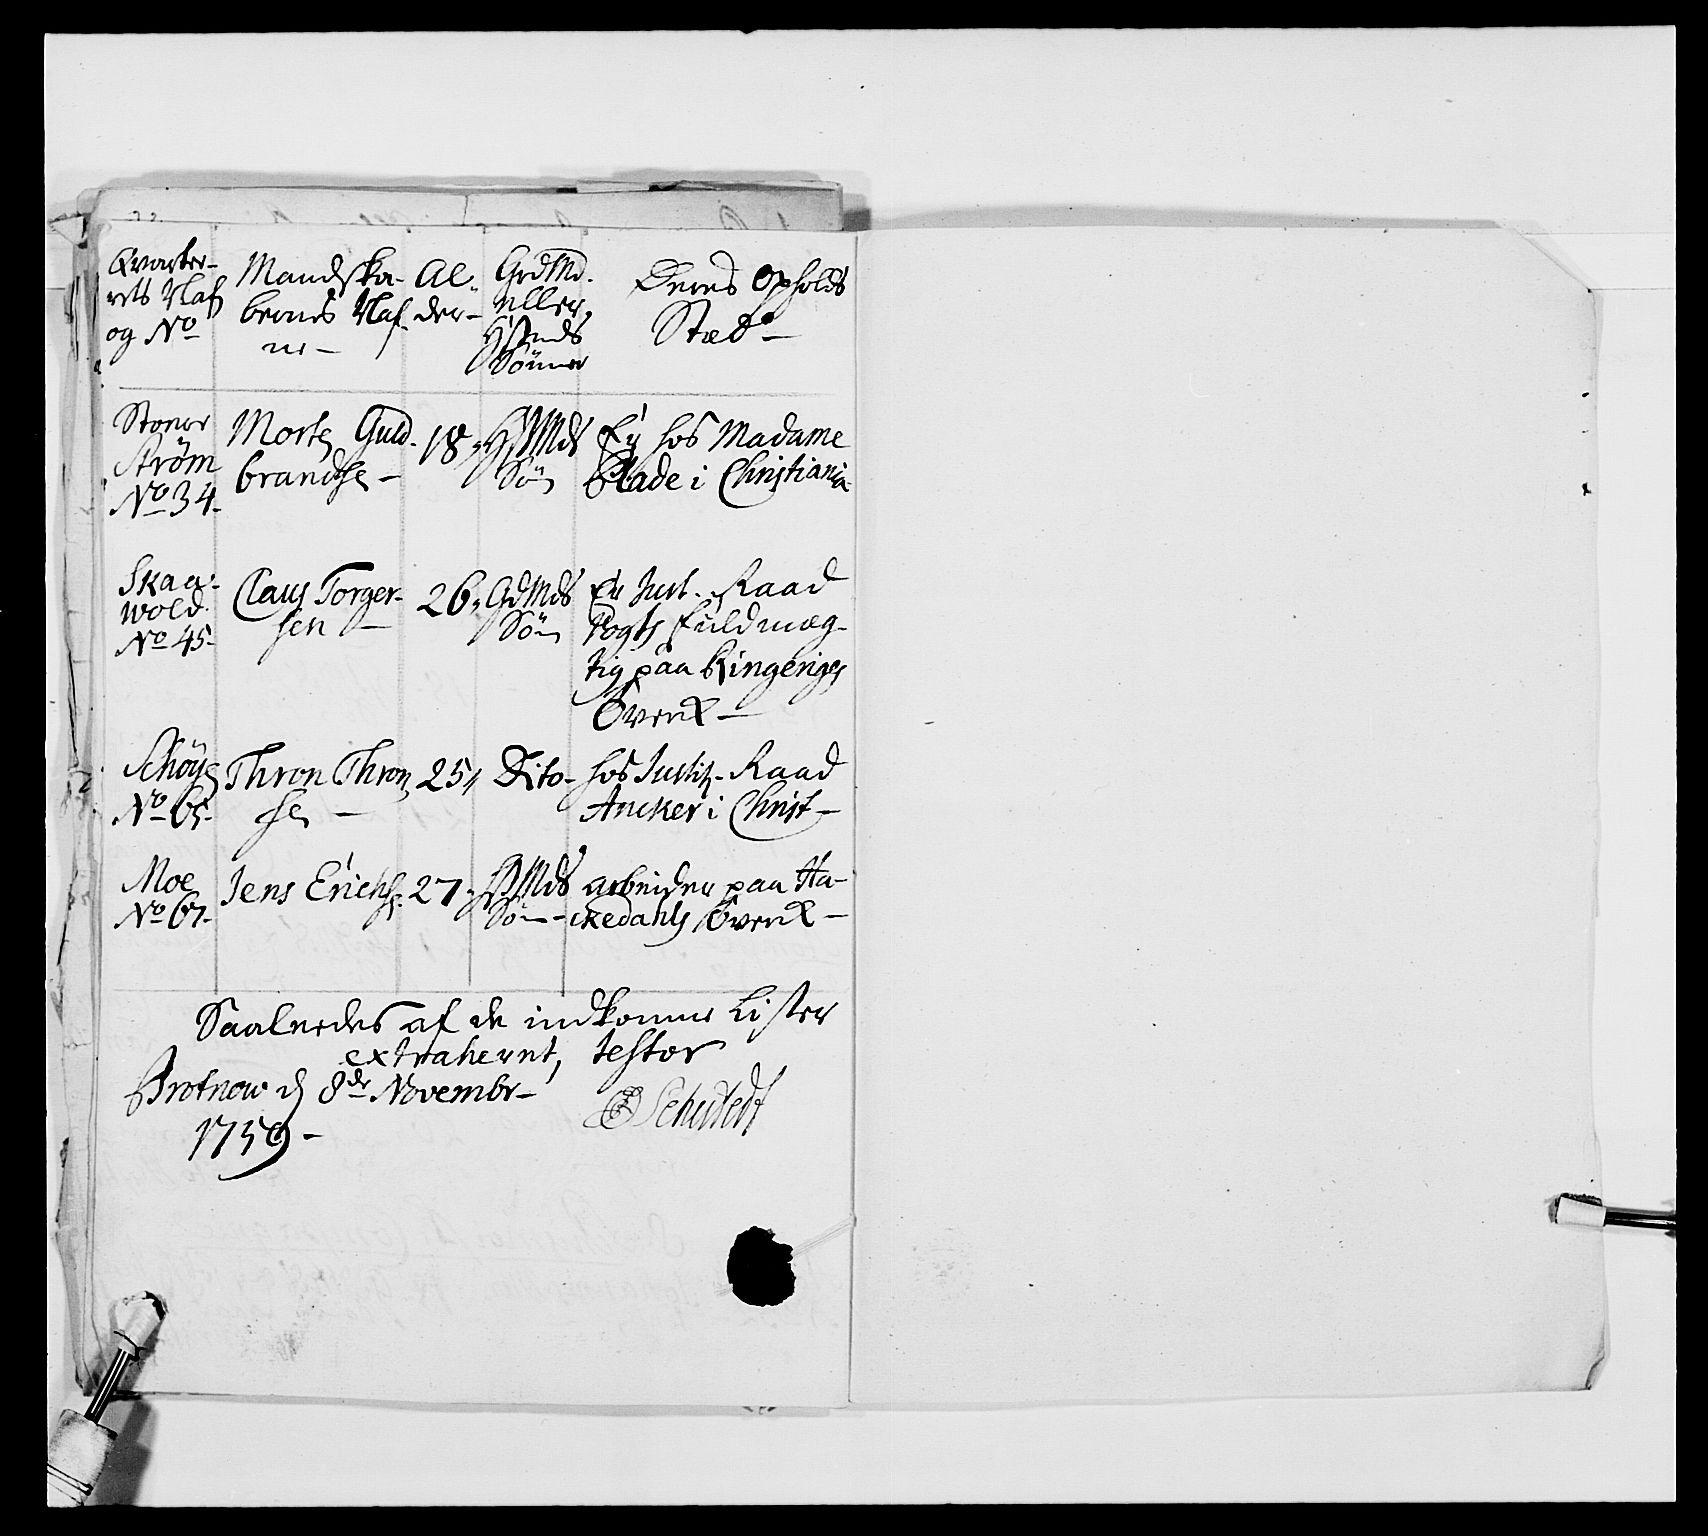 Qvarter-
rets Naf
og No
Mandska-
bernes Naf
ne -
Al-
der -
GrdMd.
eller
HsMds
Sönner
Deres Opholds
Stæd -
Store
Strøm
No 34.
Morten Guld-
brandsen -
18,
HsMds
Søn
Er hos Madame
Blade i Christiania
Skaa-
wold.
No 45-
Claus Torger-
sen -
26,
GdMds
Søn
Er Just. Raad
Vogts fuldmæg-
tig paa Ringeriges
Øverk -
Schöye
No 65-
Thron Thron
sen -
25,,
Dito-
hos Justitz-Raad
Ancker i Christ -
Moe
No 67-
Jens Erichs.
27,
HsMds
Søn -
arbeider paa Ha-
ckedahls Øverk -
Saaledes af de indkomne Lister
extraheret, testor
Brotnow d 8de Novembr -
1759 -